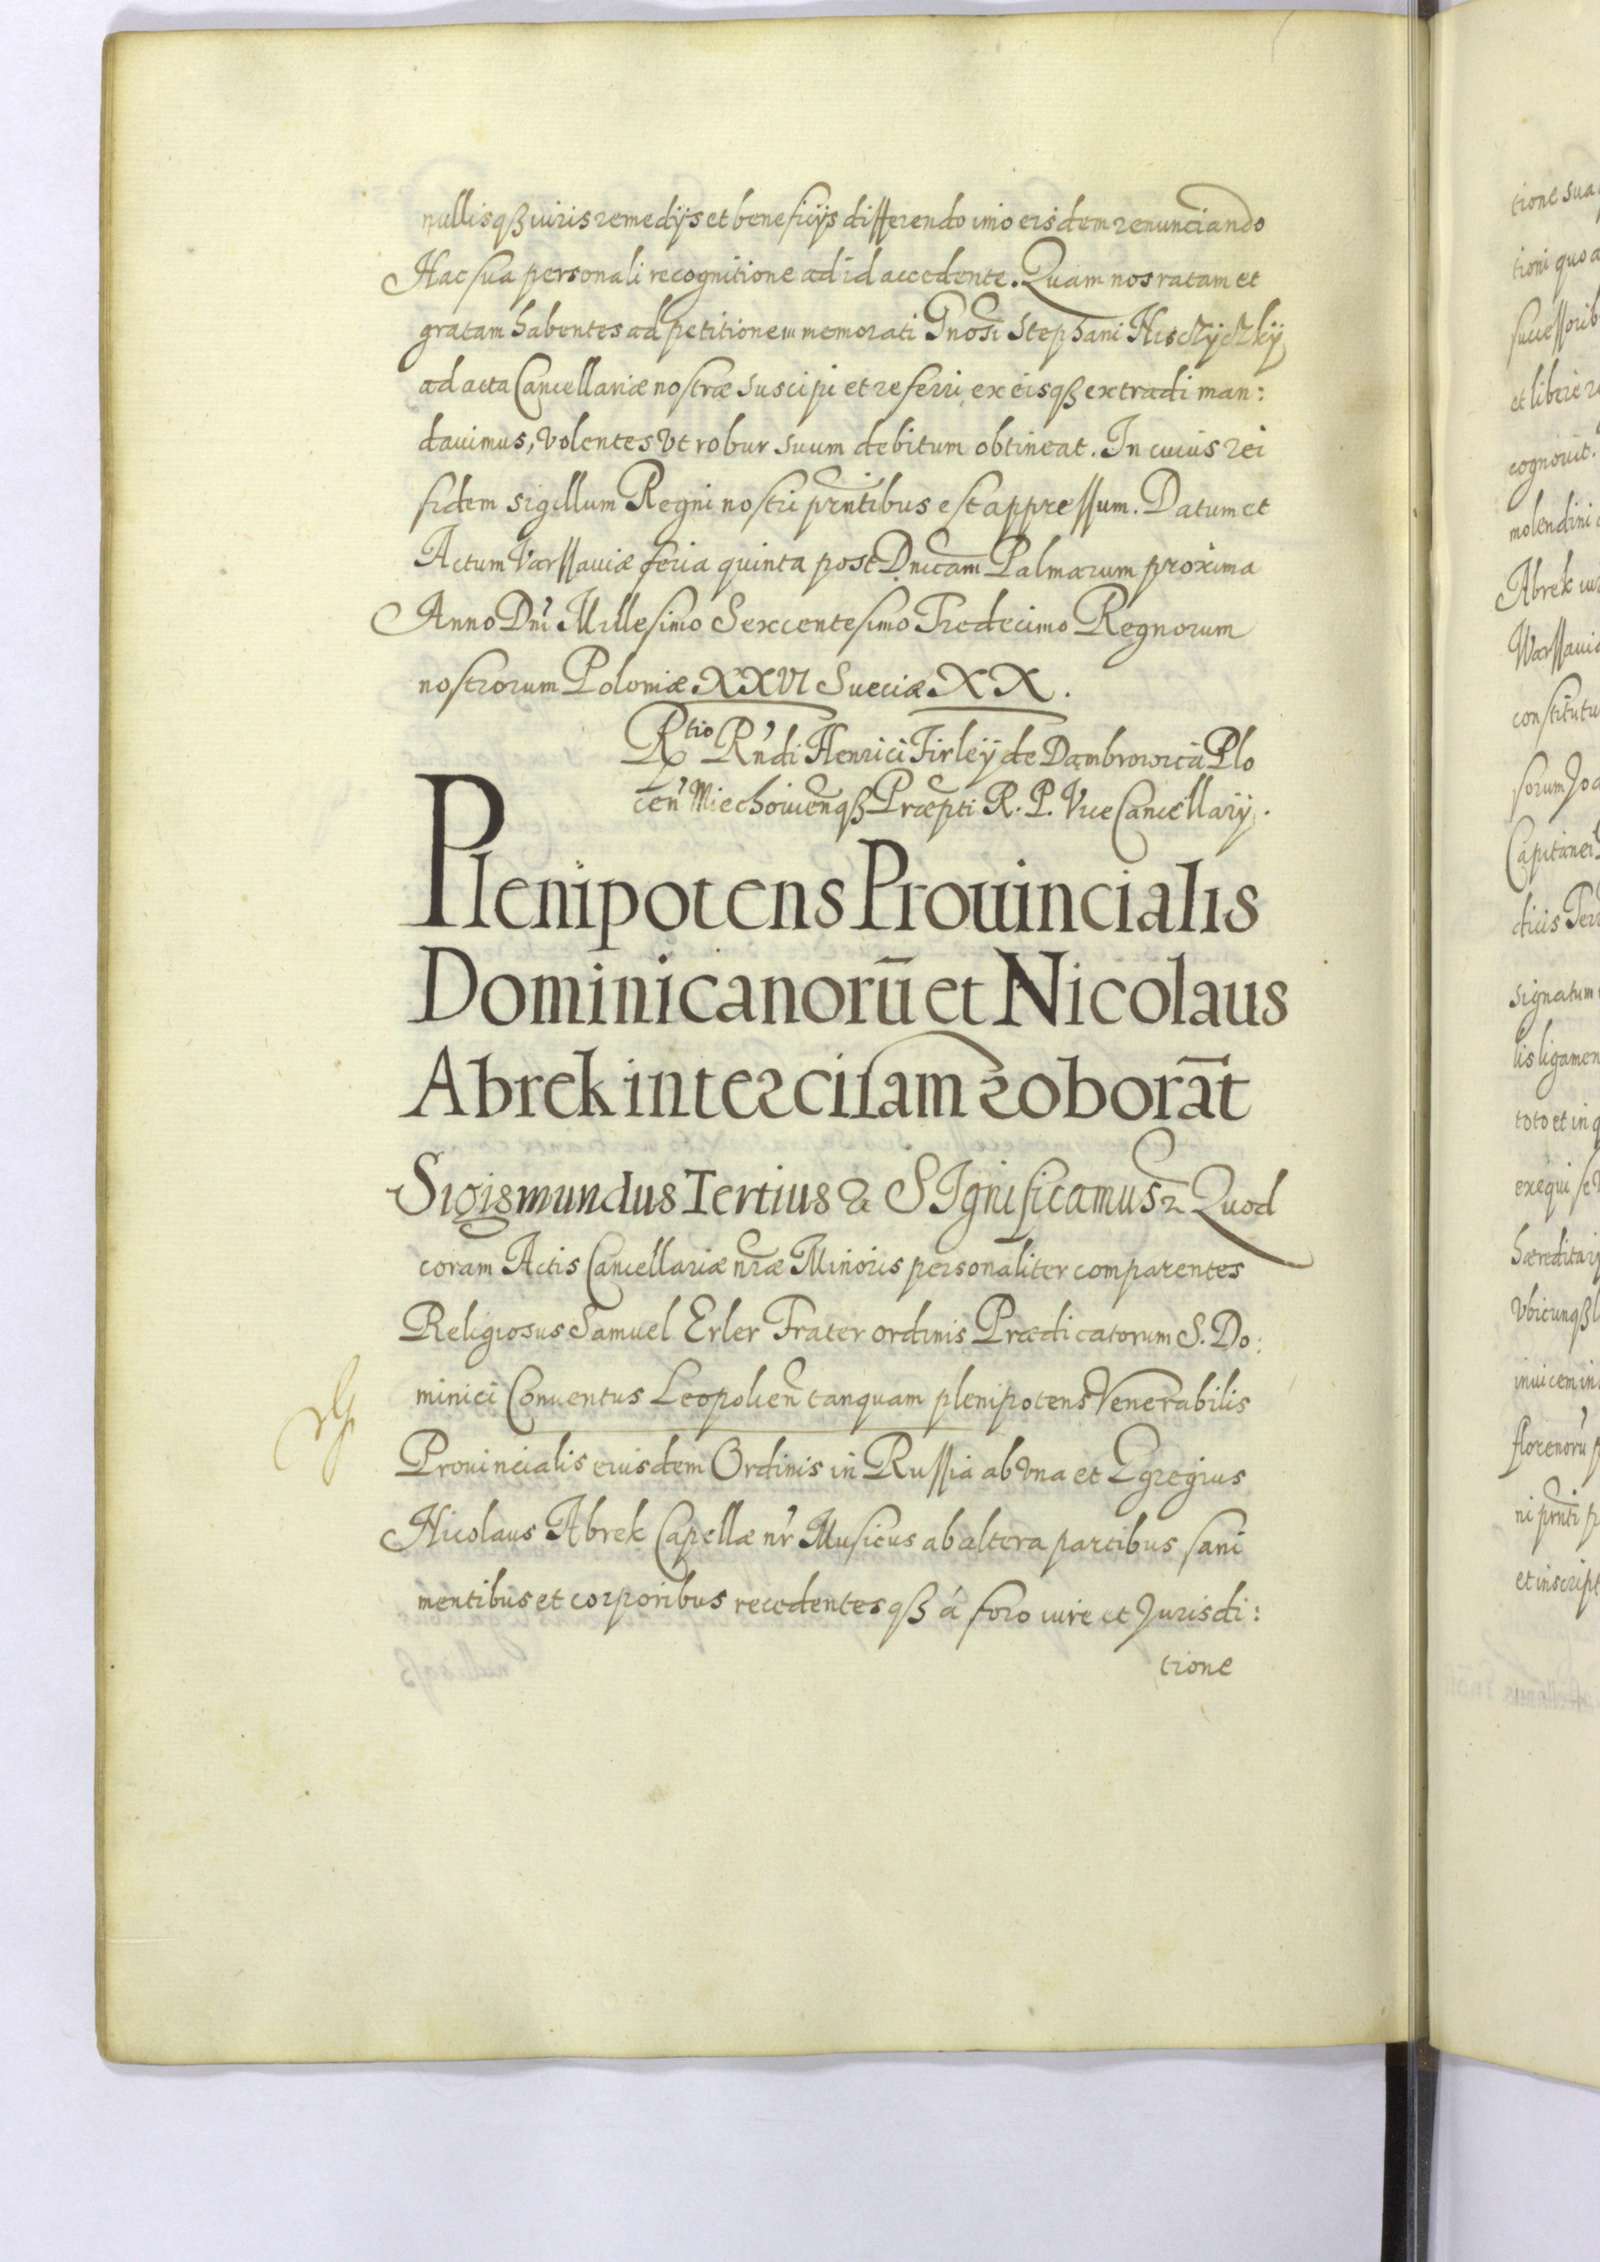 nullisqß iuris remedijs et beneficijs differendo imo eisdem renunciando
Hac sua personali recognitione ad id accedente. Quam nos ratam et
gratam habentes ad petitionem memorati Gnosi Stephani
ad acta Cancellariæ nostræ suscipi et referri, ex eisqß extradi man:
dauimus, volentes Vt robur suum debitum obtineat. In cuius rei
fidem sigillum Regni nostri prntibus est appressum. Datum et
Actum Varssauiæ feria quinta post Dnicam Palmarum proxima
Anno Dni Millesimo Sexcentesimo Tredecimo Regnorum
nostrorum Poloniæ XXVI Sueciæ XX.
Rtio Rndi Henrici Firleÿ de Dambrowica Plo
cen Miechouienqß Præpti R. P. Vice Cancellarÿ.
Plenipotens Prouincialis
Dominicanorū et Nicolaus
Abrek intercisam roborāt
Sigismundus Tertius & SIgnificamus Quod
coram Actis Cancellariæ nræ Minoris personaliter comparentes
Religiosus Samuel Erler Frater ordinis Prædicatorum S. Do:
minici Conuentus Leopolien tanquam plenipotens Venerabilis
Prouincialis eiusdem Ordinis in Russia ab vna et Egregius
Nicolaus Abrek Capellæ nr Musicus ab altera partibus sani
mentibus et corporibus recedentesqß á foro iure et Jurisdi:
tione
tione sua
tioni quo a
successorib
et libere re
cognouit.
molendini
Abrek iur
Warssauia
constitutu
sorum Joa
Capitanei
dicis Terr
signatum
lis ligamen
toto et in q
exequi se
hæreditarÿ
Vbicunqß
inuicem in
florenorū p
ni prnti
et inscript